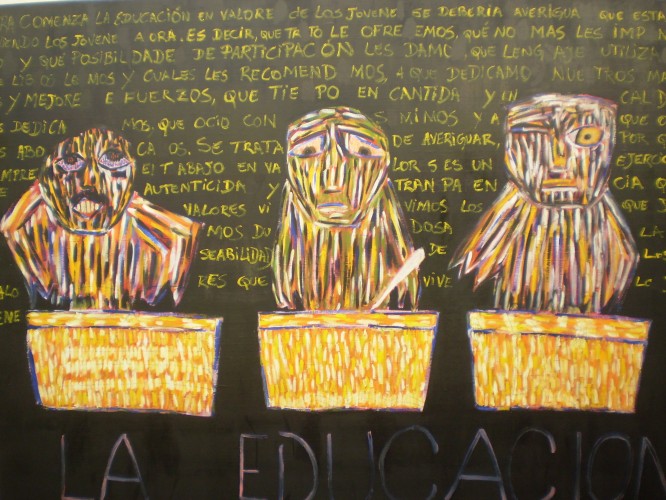 COMENZA LA EDUCACIÓN EN VALORE DE LOS JOVENE SE DEBERIA AVERIGUA QUE ESTA
LOS JOVENE A ORA. ES DECIR, QUE TA TO LE OFRE EMOS, QUÉ NO MAS LES IMP N
O Y QUÉ POSIBILDADE DE PARTICIPACIÓN LES DAMO, QUE LENG AJE UTILIZA
LOS Y CUALES LES RECOMEND MOS, A QUE DEDICAMO NUE TROS M
S Y MEJORE E FUERZOS, QUE TIE PO EN CANTIDA Y EN CALID
S DEDICA MOS. QUE OCIO CON S VIMOS Y A QUE O
S ABO CA OS. SE TRATA DE AVERIGUAR, POR Q
MPRE El TABAJO EN VA LOR S ES UN EJERCI
E AUTENTICIDA Y TRAN PA EN CIA Q
VALORES VI VIMOS LOS QUE
MOS DU DOSA LA
SEABILIDAD LES
ALO RES QUE VIVE LO
ENE
LA EDUCACION